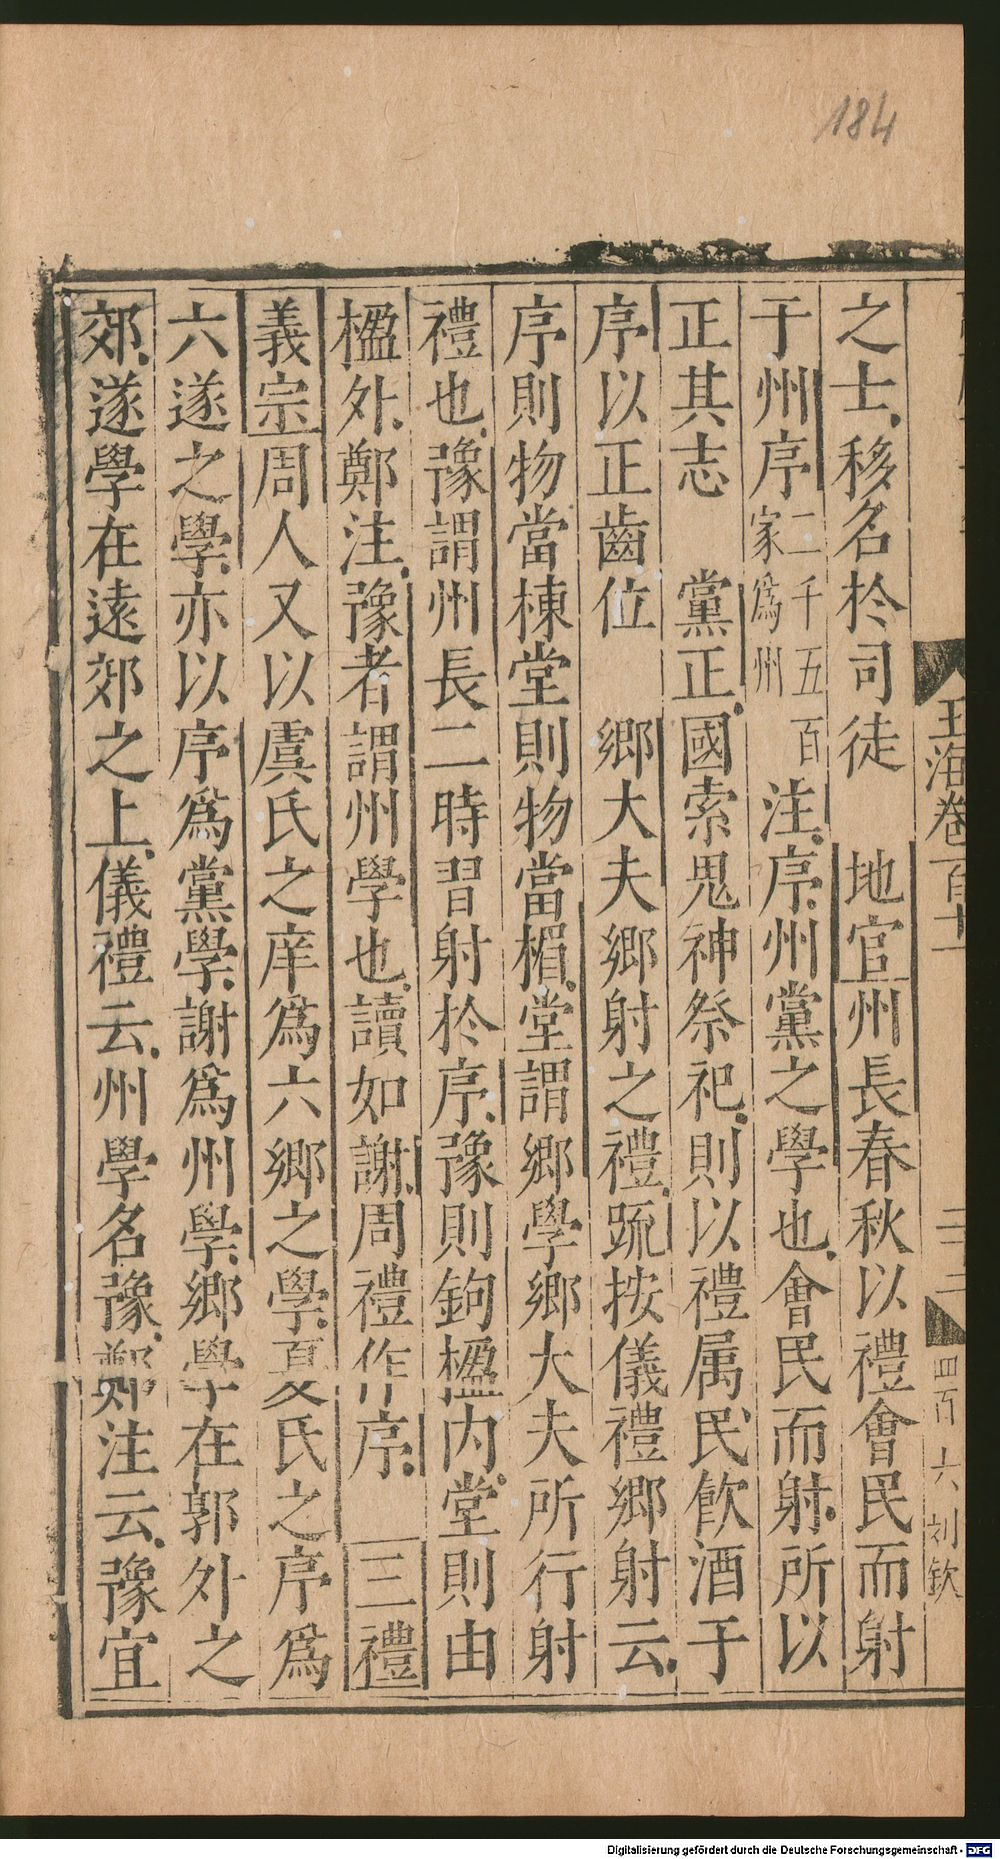 184
玉海卷百十一
二十二
四百六 刘欽
之士移名於司徒 地官州長春秋以禮會民而射
于州序二千五百家爲州 注序州黨之學也會民而射所以
正其志 黨正國索鬼神祭祀則以禮属民飲酒于
序以正齒位 鄉大夫鄉射之禮䟽按儀禮鄉射云
序則物當棟堂則物當楣堂謂鄉學鄉大夫所行射
禮也豫謂州長二時習射於序豫則鉤楹内堂則由
楹外鄭注豫者謂州學也讀如謝周禮作序 三禮
義宗周人又以虞氏之庠爲六鄉之學夏氏之序爲
六遂之學亦以序爲黨學謝爲州學鄉學在郭外之
郊遂學在遠郊之上儀禮云州學名豫鄭注云豫宜
Digitalisierung gefördert durch die Deutsche Forschungsgemeinschaft - DFG